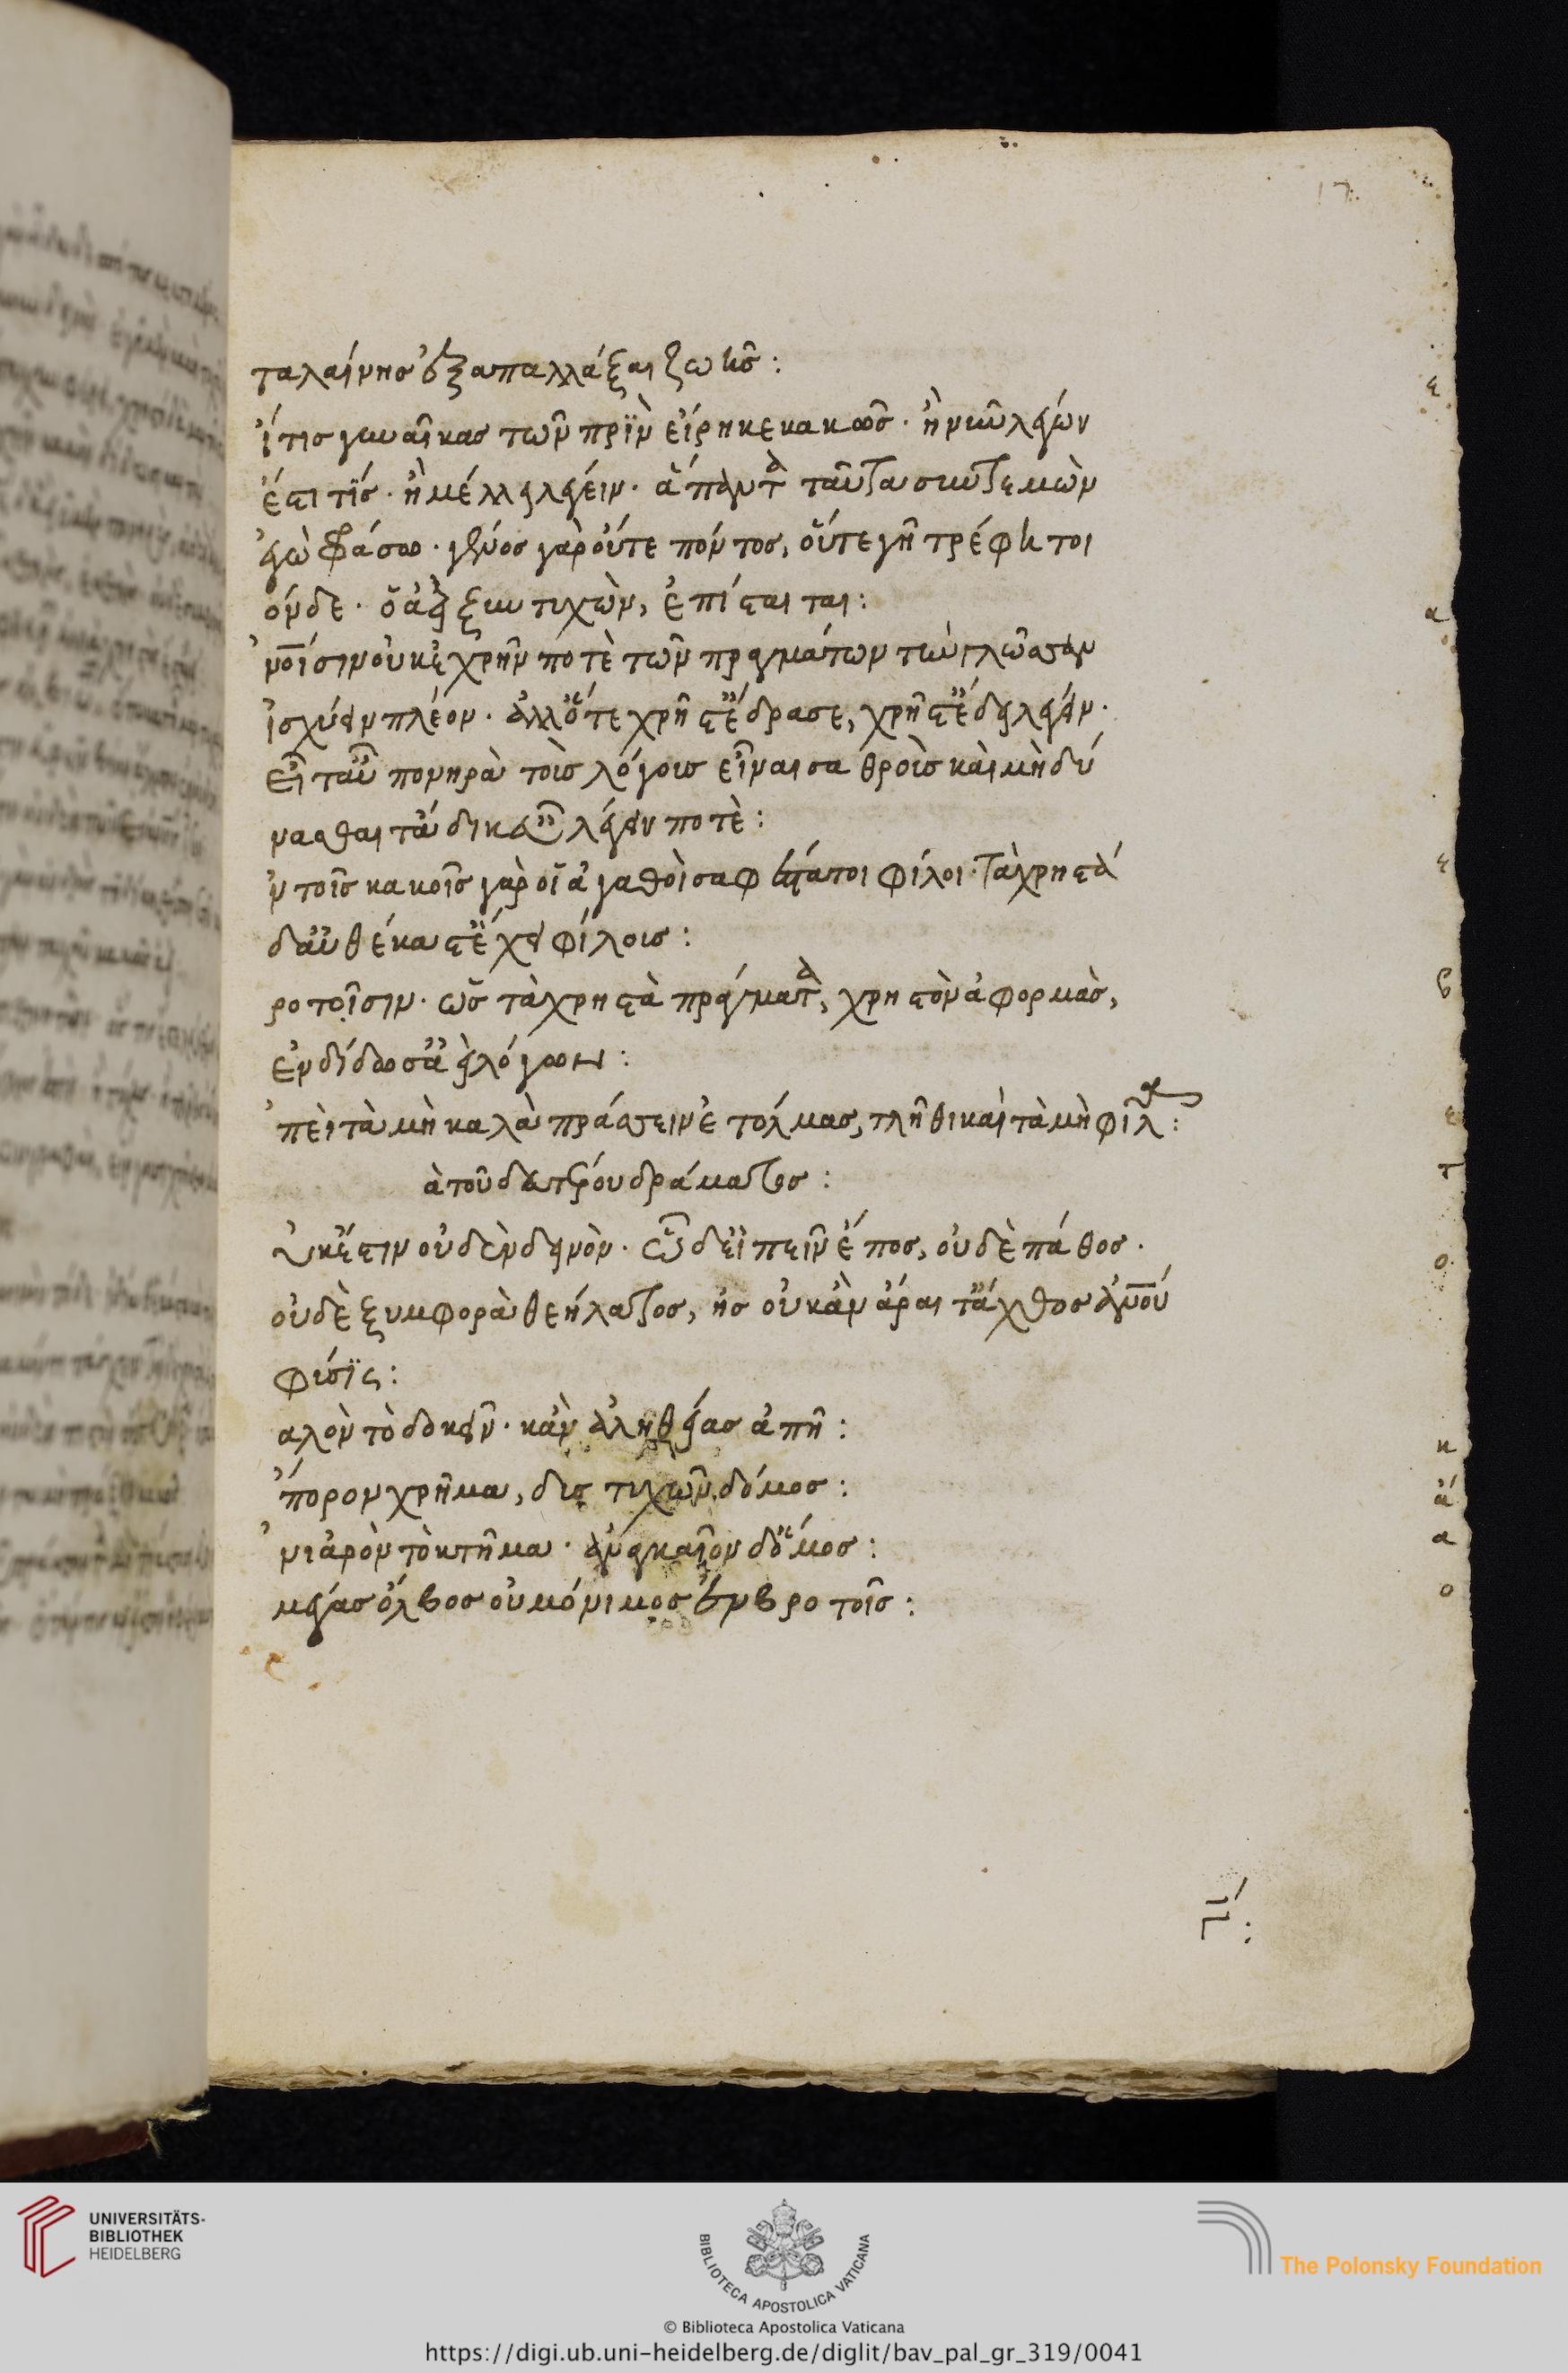 17
ταλαίνησ ἐξαπαλλάξαι ζωῆσ :
ἴτισ γυναῖκασ τῶν πρὶν εἴρηκε κακῶσ · ἢ νῦν λέγων
ἔστι τίσ · ἢ μέλλει λέγειν · ἅπαντα ταῦτα συντεμὼν
ἐγὼ φράσω · γένοσ γὰρ οὔτε πόντοσ, οὔτε γῆ τρέφει τοι
όνδε · ὁ ἀεὶ ξυντυχὼν, ἐπίσταται :
νοῖσιν οὐκ ἐχρῆν ποτὲ τῶν πραγμάτων τὴν γλῶσσαν
ἰσχύειν πλέον · ἀλλ' εἴτε χρήστ' ἔδρασε, χρήστ' ἔδει λέγειν ·
εἶτ' αὖ πονηρὰ τοὺσ λόγουσ εἶναι σαθροὺσ καὶ μὴ δύ
νασθαι τἄδικ' εὖ λέγειν ποτὲ :
ν τοῖσ κακοῖσ γὰρ οἱ ἀγαθοὶ σαφέστατοι φίλοι · τὰ χρηστὰ
δ' αὖθ' ἕκαστ' ἔχει φίλουσ :
ροτοῖσιν · ὡσ τὰ χρηστὰ πράγματα, χρηστῶν ἀφορμὰσ,
ἐνδίδωσ' ἀεὶ λόγων :
πεὶ τὰ μὴ καλὰ πράσσειν ἐτόλμασ, τλῆθι καὶ τὰ μὴ φίλα :
ὰ τοῦ δευτέρου δράματοσ :
ὐκ ἔστιν οὐδὲν δεινὸν · ὧδ' εἰπεῖν ἔποσ, οὐδὲ πάθοσ ·
οὐδὲ ξυμφορὰ θεήλατοσ, ἧσ οὐκ ἂν ἄραιτ' ἄχθοσ ἀνθρώπου
φύσισ :
αλὸν τὸ δοκεῖν · κἂν ἀληθείασ ἀπῆ :
πορον χρῆμα, δυστυχῶν δόμοσ :
νιαρὸν τὸ κτῆμα · ἀναγκαῖον δ' ὅμωσ :
μέγασ ὄλβοσ οὐ μόνιμοσ ἐν βροτοῖσ :
ε
α
ε
β
ε
τ
ο
κ
ἄ
α
ο
UNIVERSITÄTS-
BIBLIOTHEK
HEIDELBERG
BIBLIOTECA APOSTOLICA VATICANA
The Polonsky Foundation
© Biblioteca Apostolica Vaticana
https://digi.ub.uni-heidelberg.de/diglit/bav_pal_gr_319/0041